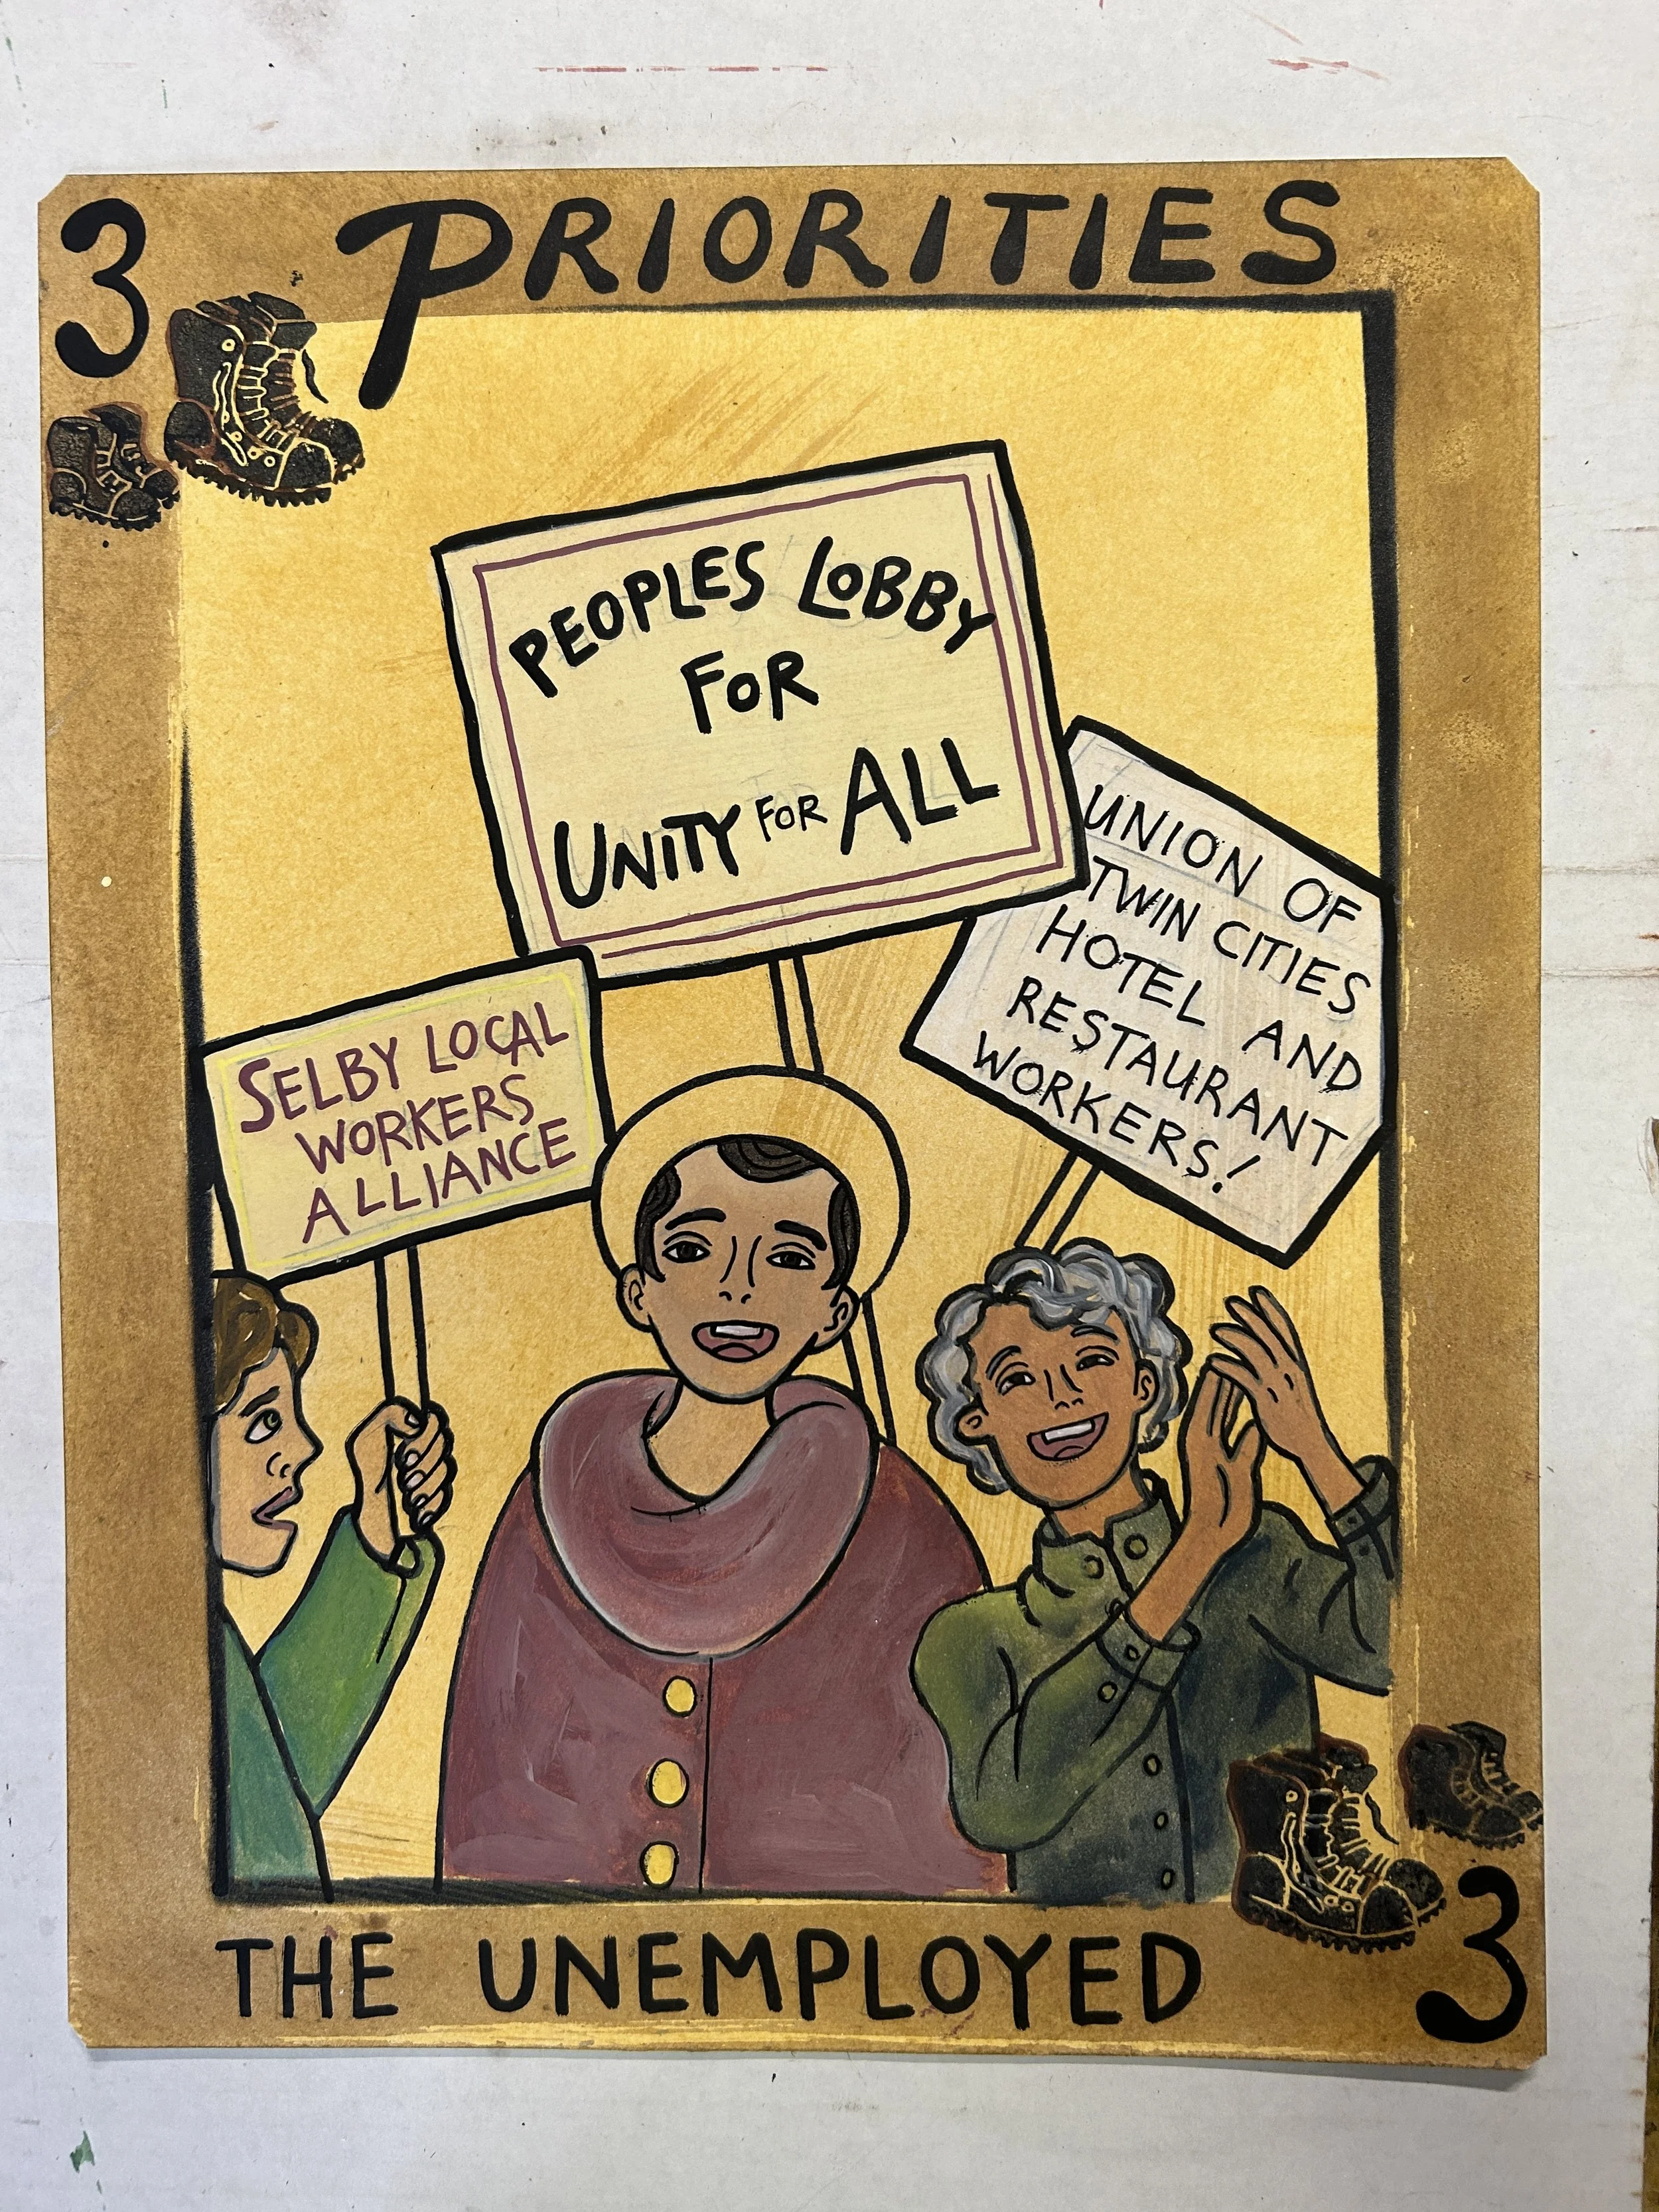 3 PRIORITIES
PEOPLES LOBBY
FOR
UNITY FOR ALL
UNION OF
TWIN CITIES
HOTEL AND
RESTAURANT
WORKERS!
SELBY LOCAL
WORKERS
ALLIANCE
THE UNEMPLOYED
3